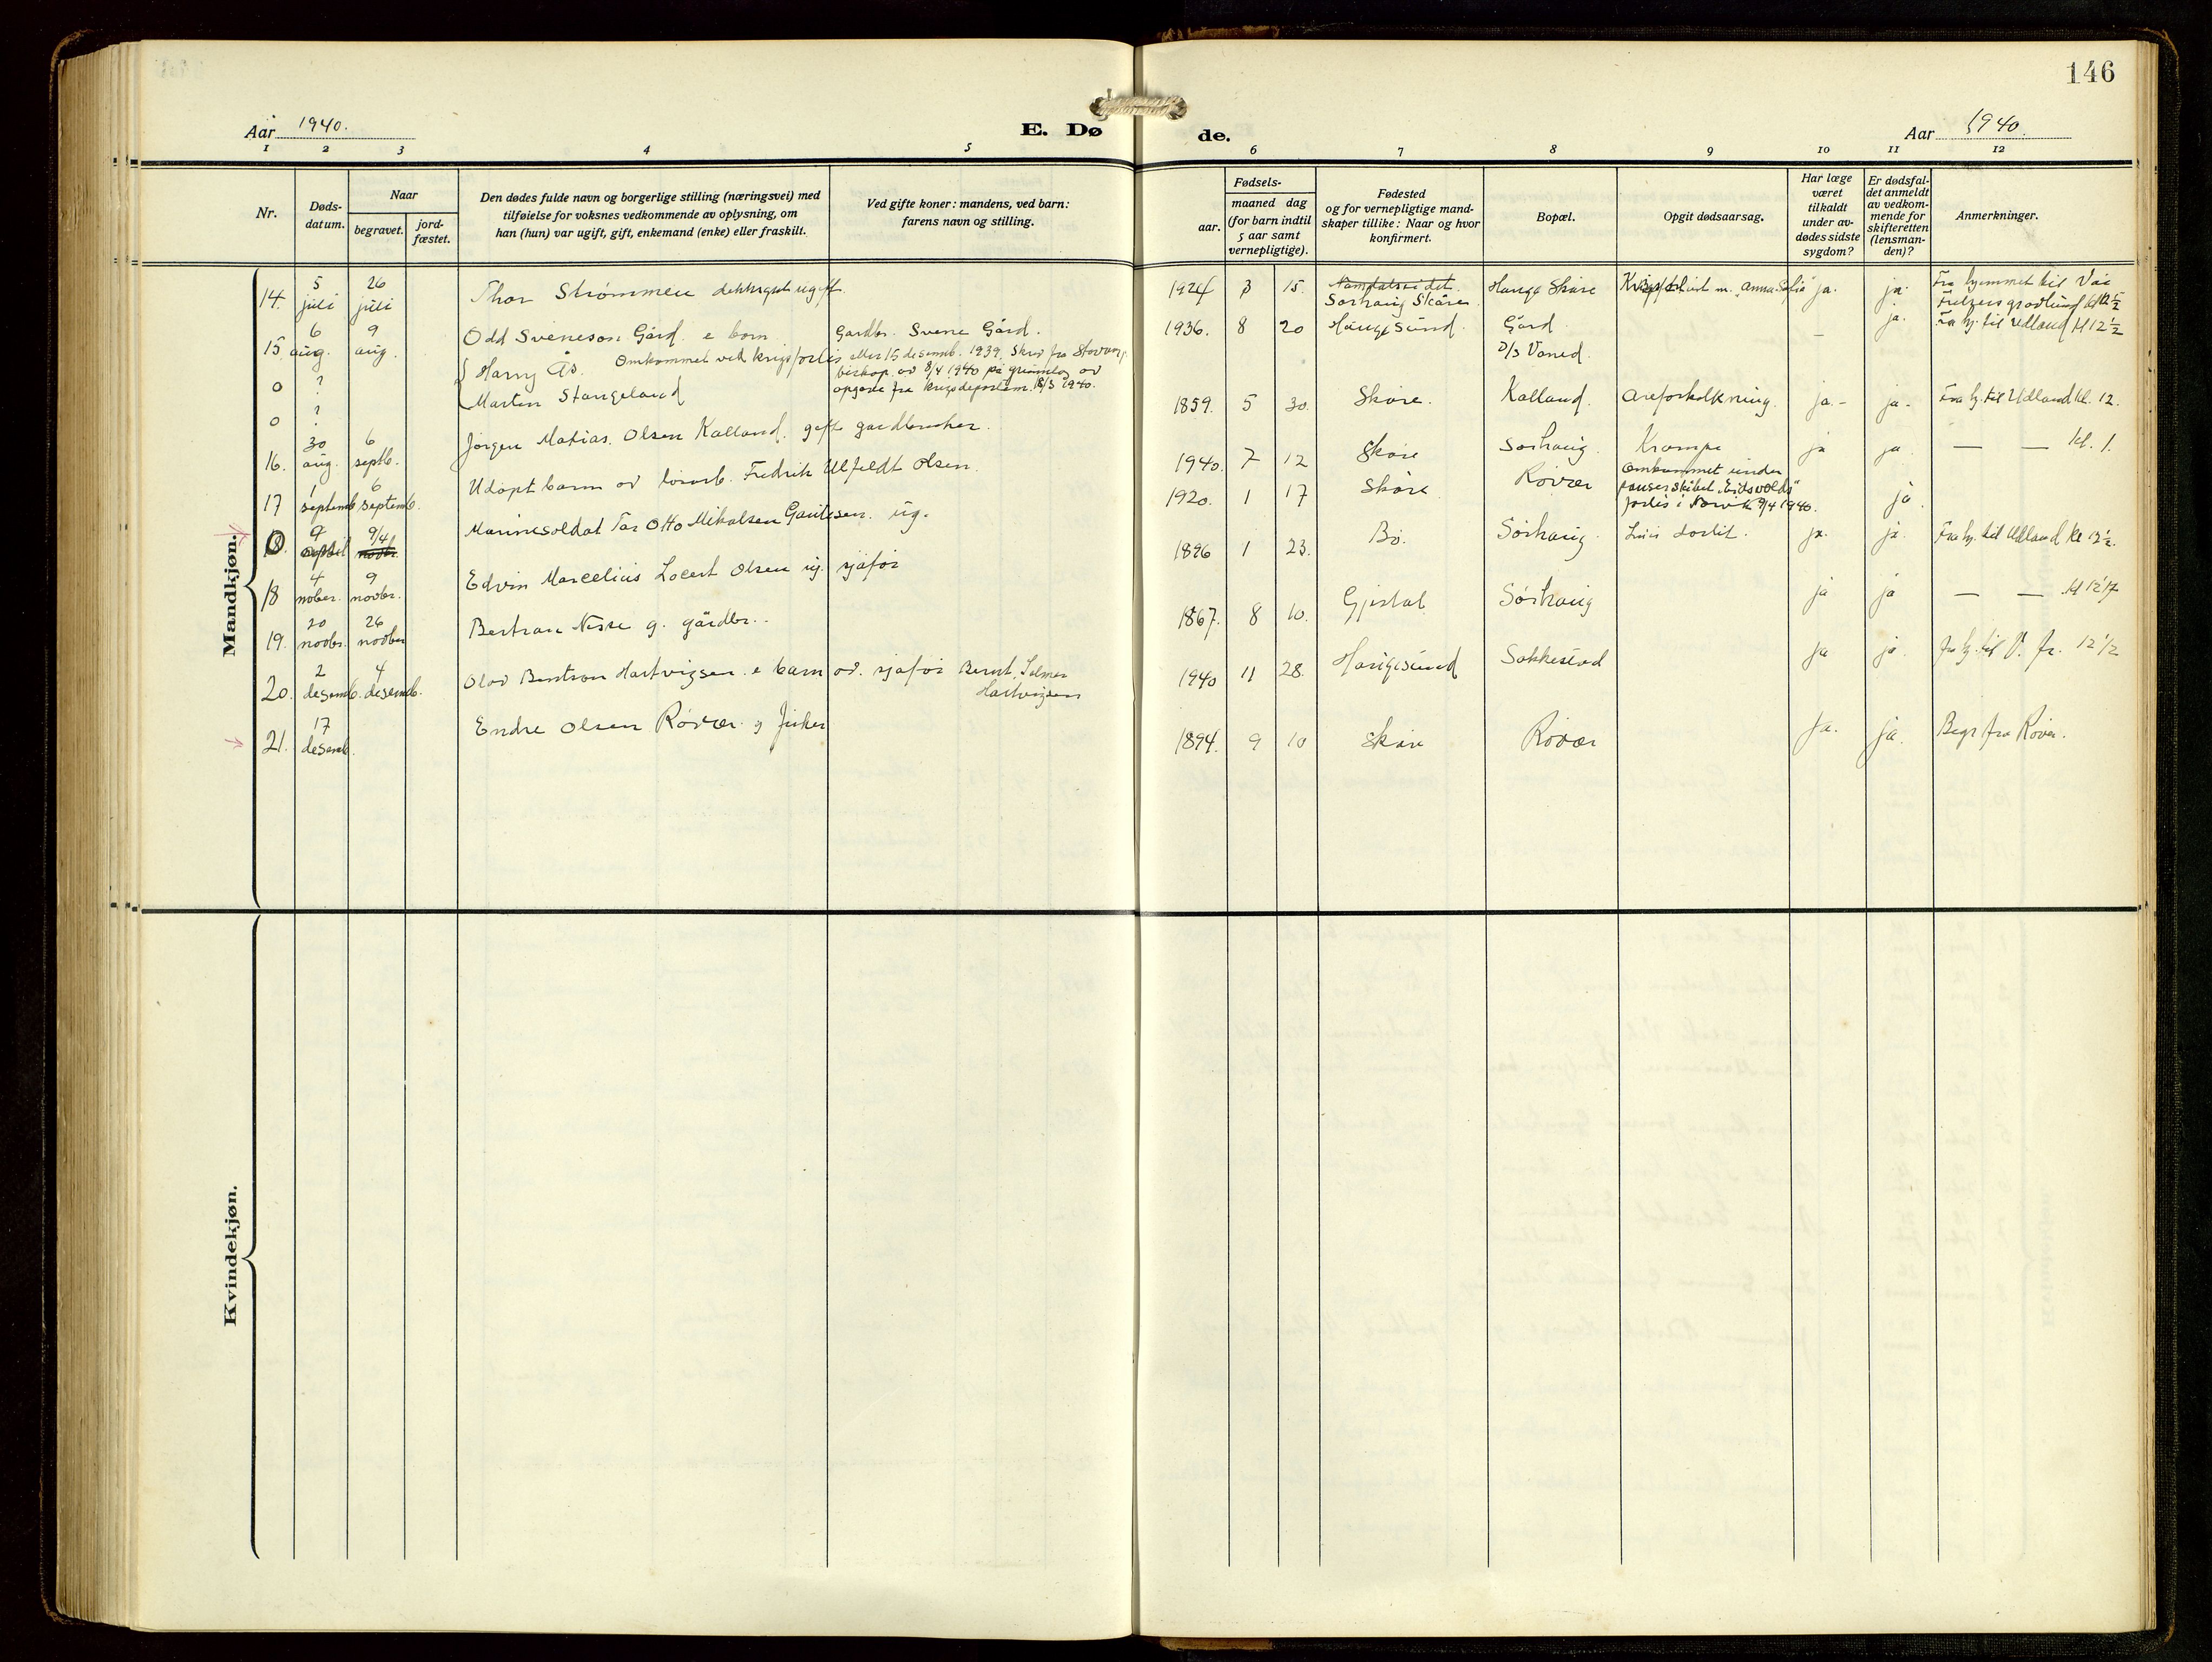 146
Aar 1940.
E. Dø de.
Aar 1940.
1 2 3 4 5 6 7 8 9 10 11 12
Nr.
Døds-
datum.
Naar
begravet.
jord-
fæstet.
Den dødes fulde navn og borgerlige stilling (næringsvei) med
tilføielse for voksnes vedkommende av oplysning, om
han (hun) var ugift, gift, enkemand (enke) eller fraskilt.
Ved gifte koner: mandens, ved barn:
farens navn og stilling.
Fødsels-
aar.
maaned dag
(for barn indtil
5 aar samt
vernepligtige).
Fødested
og for vernepligtige mand-
skaper tillike: Naar og hvor
konfirmert.
Bopæl.
Opgit dødsaarsag.
Har læge
været
tilkaldt
under av-
dødes sidste
sygdom?
Er dødsfal-
det anmeldt
av vedkom-
mende for
skifteretten
(lensman-
den)?
Anmerkninger.
Mandkjøn.
14. 5 juli 26 juli Thor Strømmen dekksgut ugift 1924 3 15. Namdalseidet. Sørhaug Skåre Hauge Skåre Krigsforlist m. Anna Sofie ja. ja. Fra hjemmet til Vår
15 6 aug. 9 aug. Odd Sveneson Gård. e barn Gardbr. Svene Gård. 1936. 8 20 Haugesund. Gård – ja. Fra hj. til Udland kl 12 ½
0 ? Harry Ås. Omkommet ved krigsforlis eller 15 desemb. 1939. Skriv fra Stavang. D/S Vaned.
biskop. av 8/4 1940 på grunnlag av
0 ? Martin Stangeland opgave fra krigsdepartem. 18/3 1940.
16. 30 aug. 6 septb. Jørgen Matias Olsen Kalland. gift gardbruker. 1859. 5 30. Skåre. Kalland. Åreforkalkning. ja.- ja- Fra hj. til Udland kl. 12.
17 1 septemb 6 septemb. Udøpt barn av Fredrik Ulfeldt Olsen. 1940. 7 12 Skåre Sørhaug. Krampe ja ja — — kl. 1.
0 9 april 9/4 Marinesoldat Otto Mikalsen Gautesen. ug. 1920. 1 17 Skåre Røvær Omkommet under
panserskibet "Eidsvolds"
forlis i Narvik 9/4 1940. ja.
18 4 nober. 9 novbr. Edvin Marcelius Locert Olsen ug. sjåfør 1896 1 23. Bø. Sørhaug. ja. ja. Fra hj. til Udland kl 12 ½.
19. 20 novbr. 26 novbr Bertran Nesse g. gårdbr.. 1867. 8 10. Gjestal Sørhaug ja ja — — kl 12
20. 2 desemb. 4 desemb. Olav Bentron Hartvigsen. e barn av. sjåfør Bernt Selmer
Hartvigsen 1940 11 28. Haugesund Sakkestad ja ja. fra hj. til 12 ½
21. 17 desemb. Endre Olsen Røvær. g fisker 1894. 9 10 Skåre Røvær ja. ja. Begr fra Røvær.
Kvindekjøn.